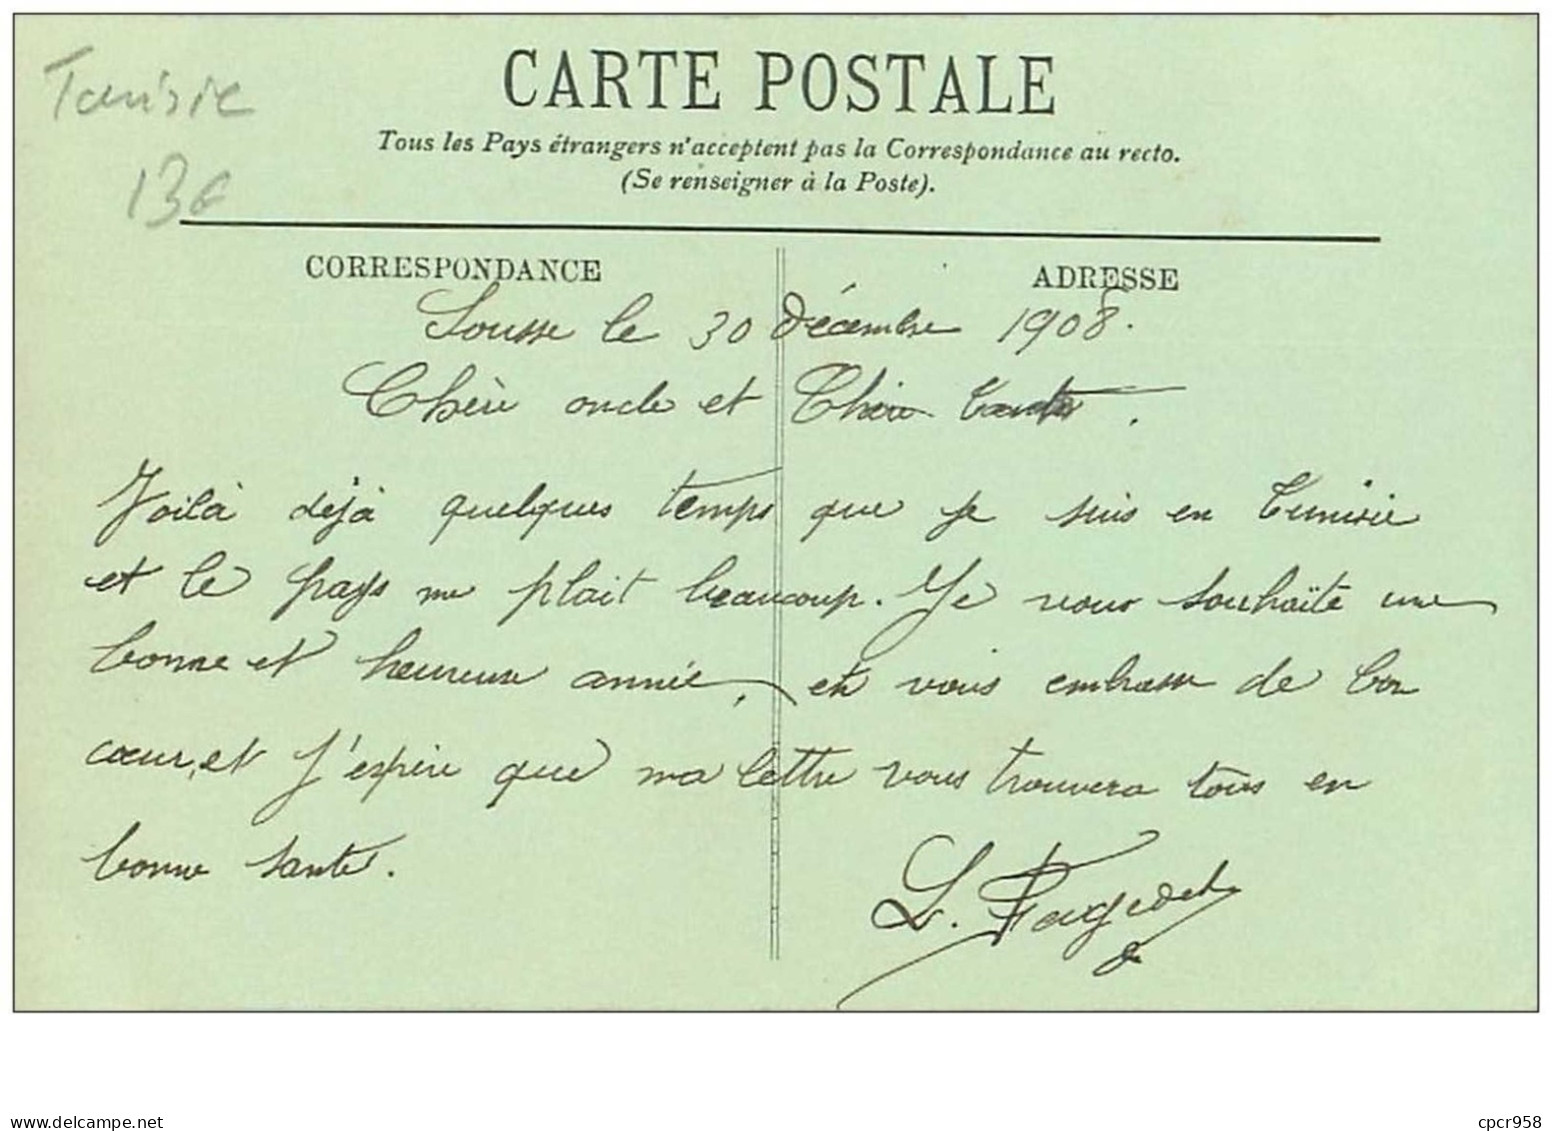 Tunisie
13€
CARTE POSTALE
Tous les Pays étrangers n'acceptent pas la Correspondance au recto.
(Se renseigner à la Poste).
CORRESPONDANCE
ADRESSE
Sousse le 30 Décembre 1908.
Chère oncle et Chère tante.
Voilà déjà quelques temps que je suis en Tunisie
et le pays me plait beaucoup. Je vous souhaite une
bonne et heureuse année, et vous embrasse de bon
cœur, et j'espère que ma lettre vous trouvera tous en
bonne santé.
L.
delcampe.net
cpcr958